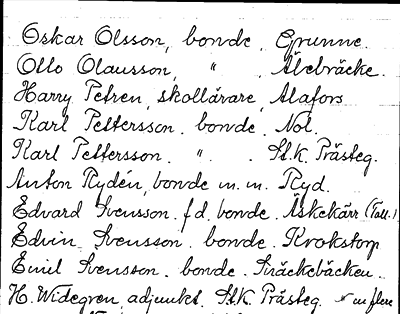 Oskar Olsson, bonde, Grunne
Otto Olausson, " , Älebräcke.
Harry Petren, skollärare, Alafors
Karl Pettersson. bonde. Nol.
Karl Pettersson. " . St.K. Prästeg.
Anton Rydén, bonde m. m. Ryd.
Edvard Svensson. f d. bonde. Äskekärr (Tall.)
Edvin Svensson. bonde. Krokstorp
Emil Svensson. bonde. Snäckebäcken.
H. Widegren, adjunkt. St.K. Prästeg. m flere